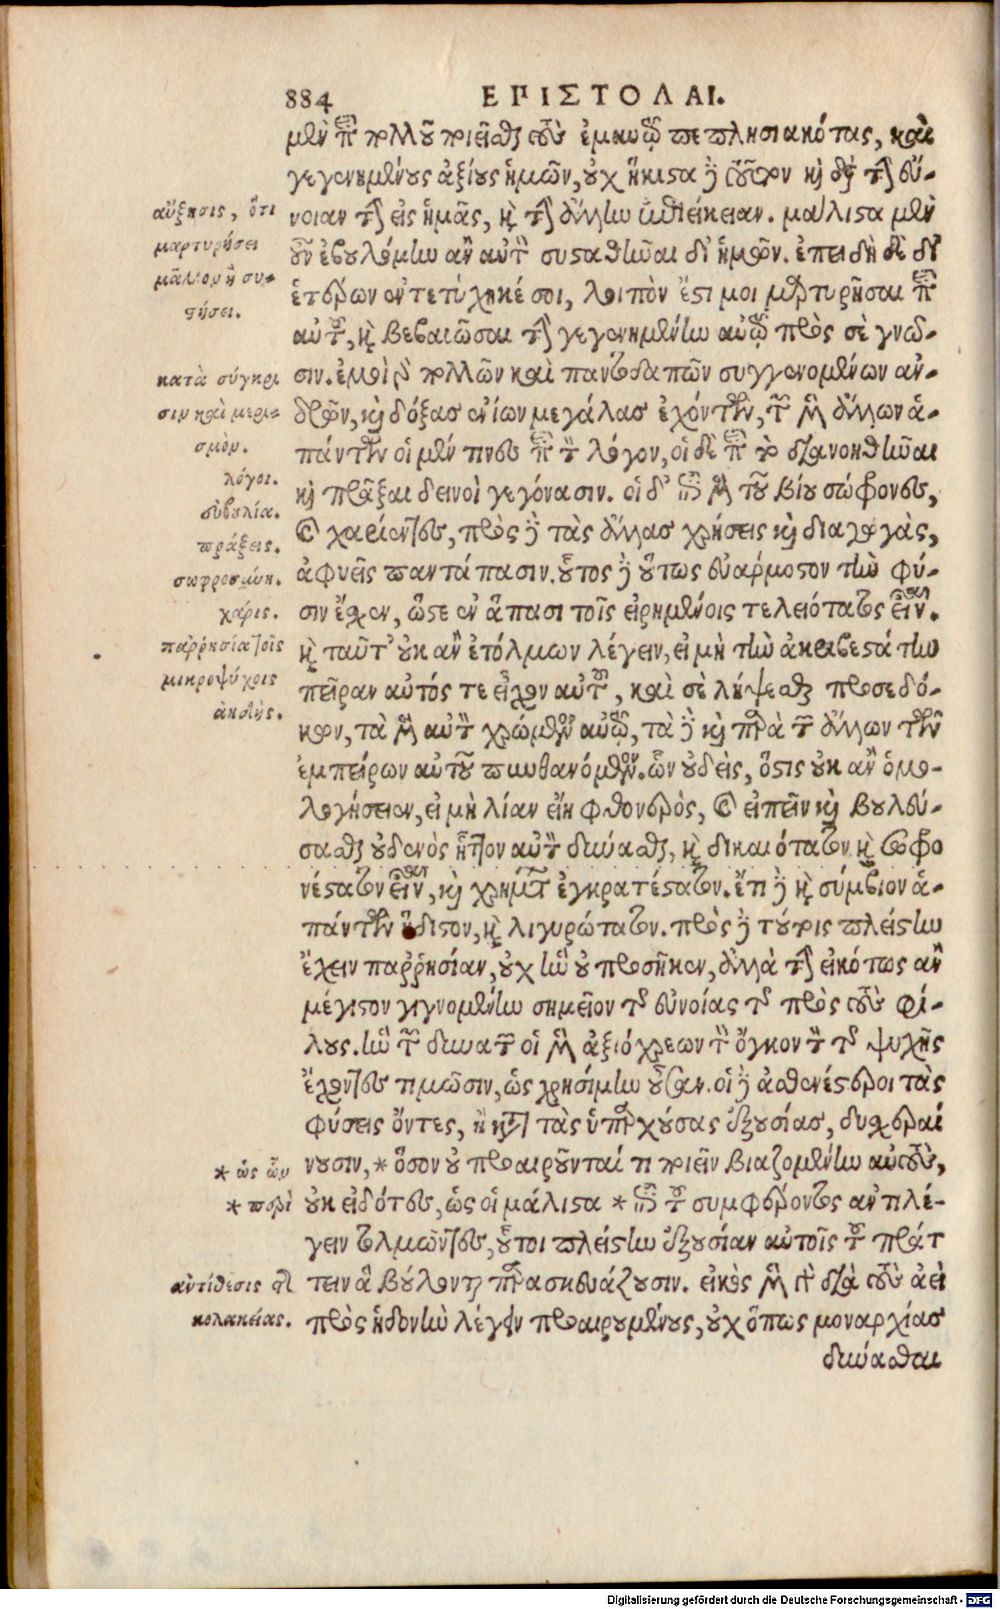 884 ΕΡΙΣΤΟΛΑΙ.
μὲν περὶ πολλοῦ ποιεῖσθαι τοὺς ἐμαυτῷ πεπλησιακότας, καὶ
γεγενημένους ἀξίους ἡμῶν, οὐχ ἥκιστα δὲ τοῦτον καὶ διὰ τὴν εὔ-
νοιαν τὴν εἰς ἡμᾶς, καὶ τὴν ἄλλην ἐπιείκειαν. μάλιστα μὲν
οὖν ἐβουλόμην ἂν αὐτὸν συσταθῆναι δι' ἡμῶν. ἐπειδὴ δὲ δι'
ἑτέρων ἐντετύχηκέ σοι, λοιπὸν ἔστι μοι μαρτυρῆσαι περὶ
αὐτοῦ, καὶ βεβαιῶσαι τὴν γεγενημένην αὐτῷ πρὸς σὲ γνῶ-
σιν. ἐμοὶ γὰρ πολλῶν καὶ παντοδαπῶν συγγενομένων ἀν-
δρῶν, καὶ δόξας ἐνίων μεγάλας ἐχόντων, τῶν μὲν ἄλλων ἁ-
πάντων οἱ μέν τινες περὶ τὸν λόγον, οἱ δὲ περὶ τὸ διανοηθῆναι
καὶ πρᾶξαι δεινοὶ γεγόνασιν. οἱ δ' ἐπὶ μὲν τοῦ βίου σώφρονες,
καὶ χαρίεντες, πρὸς δὲ τὰς ἄλλας χρήσεις καὶ διαγωγὰς,
ἀφυεῖς παντάπασιν. οὗτος δὲ οὕτως εὐάρμοστον τὴν φύ-
σιν ἔσχεν, ὥστε ἐν ἅπασι τοῖς εἰρημένοις τελειότατος εἶναι.
καὶ ταῦτ' οὐκ ἂν ἐτόλμων λέγειν, εἰ μὴ τὴν ἀκριβεστάτην
πεῖραν αὐτός τε εἶχον αὐτοῦ, καὶ σὲ λήψεσθαι προσεδό-
κων, τὰ μὲν αὐτὸν χρώμενον αὐτῷ, τὰ δὲ καὶ παρὰ τῶν ἄλλων τῶν
ἐμπείρων αὐτοῦ πυνθανόμενον. ὧν οὐδεὶς, ὅστις οὐκ ἂν ὁμο-
λογήσειεν, εἰ μὴ λίαν εἴη φθονερὸς, καὶ εἰπεῖν καὶ βουλεύ-
σασθαι οὐδενὸς ἧττον αὐτὸν δύνασθαι, καὶ δικαιότατον καὶ σωφρο
νέστατον εἶναι, καὶ χρημάτων ἐγκρατέστατον. ἔτι δὲ καὶ σύμβιον ἁ-
πάντων ἥδιστον, καὶ λιγυρώτατον. πρὸς δὲ τούτοις πλείστην
ἔχειν παῤῥησίαν, οὐχ ἣν οὐ προσῆκεν, ἀλλὰ τὴν εἰκότως ἂν
μέγιστον γιγνομένην σημεῖον τῆς εὐνοίας τῆς πρὸς τοὺς φί-
λους. ἣν τῶν δυνατῶν οἱ μὲν ἀξιόχρεων τὸν ὄγκον τὸν τῆς ψυχῆς
ἔχοντες τιμῶσιν, ὡς χρησίμην οὖσαν. οἱ δὲ ἀσθενέστεροι τὰς
φύσεις ὄντες, ἢ κατὰ τὰς ὑπαρχούσας ἐξουσίας, δυσχεραί
νουσιν, * ὅσον οὐ προαιροῦνταί τι ποιεῖν βιαζομένην αὐτοὺς,
οὐκ εἰδότες, ὡς οἱ μάλιστα * ἐπὶ τοῦ συμφέροντος ἀντιλέ-
γειν τολμῶντες, οὗτοι πλείστην ἐξουσίαν αὐτοῖς τοῦ πράτ
τειν ἃ βούλονται παρασκευάζουσιν. εἰκὸς μὲν γὰρ διὰ τοὺς ἀεὶ
πρὸς ἡδονὴν λέγειν προαιρουμένους, οὐχ ὅπως μοναρχίας
δύνασθαι
αὔξησις, ὅτι
μαρτυρήσει
μᾶλλον ἢ συ-
στήσει.
κατὰ σύγκρι
σιν καὶ μερι-
σμόν.
λόγοι.
εὐβουλία.
πράξεις.
σωφροσύνη.
χάρις.
παῤῥησία τοῖς
μικροψύχοις
ἀηδής.
* ὡς ὧν
* περὶ
ἀντίθεσις τῆς
κολακείας.
Digitalisierung gefördert durch die Deutsche Forschungsgemeinschaft - DFG